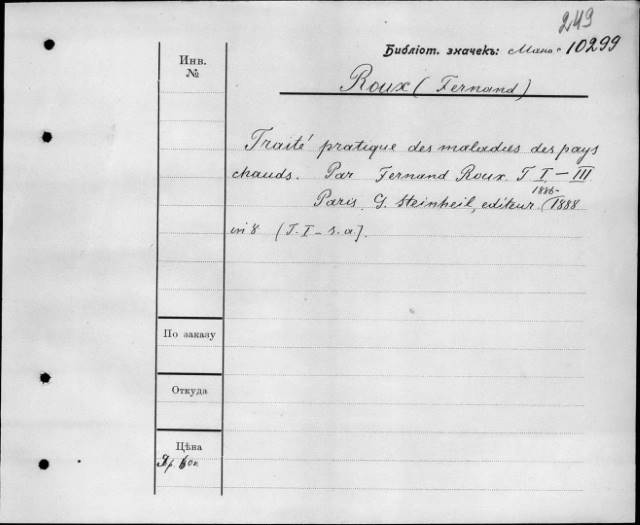 249
Библіот. значекъ: 10299
Инв.
№
Roux (Fernand)
Traité pratique des maladies des pays
chauds. Par Fernand Roux. T I – III
1886-
Paris, G. Steinheil, editeur. 1888
in 8 (T. I – s. a.].
По заказу
Откуда
Цѣна